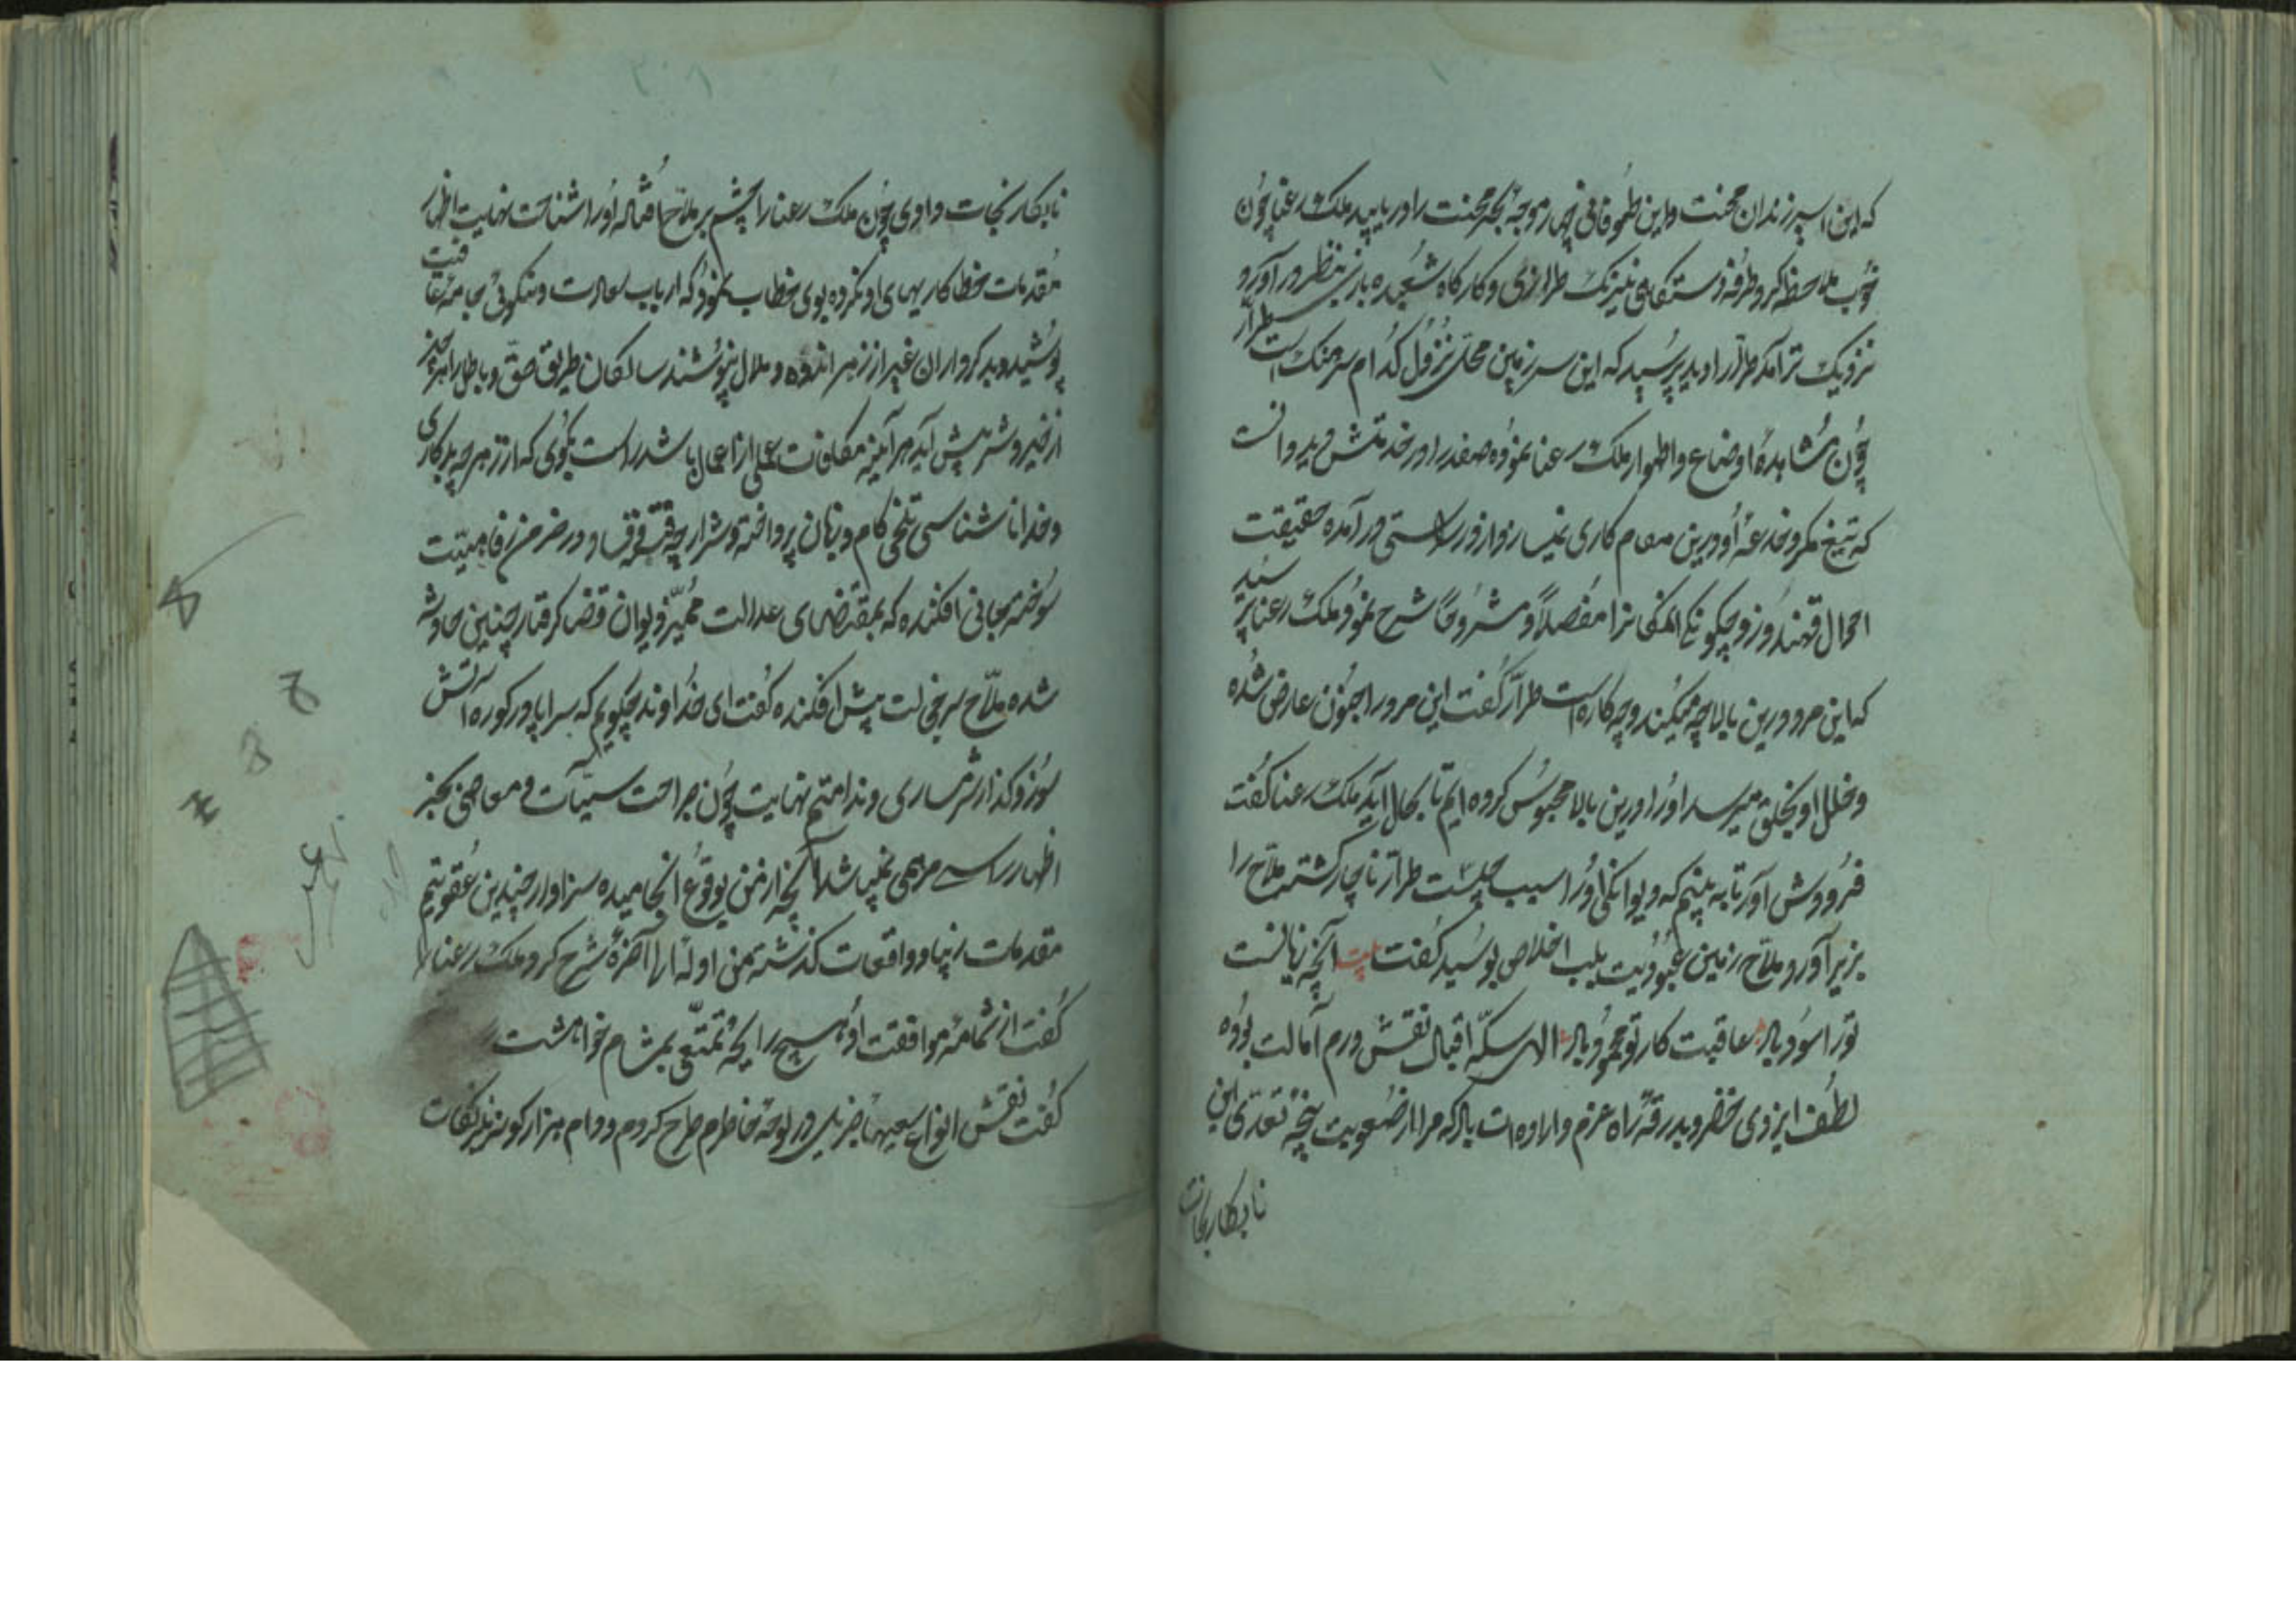 که این اسیر زندان محنت و این طوفانی چهار موجهٔ بحر محنت را دریابید ملک رعنا چون
خوب ملاحظه کرد طرفه دستگاهی نیرنگ طرازی و کارگاه شعبده بازی بنظر در آورد
نزدیک تر آمد طرّار را دید پرسید که این سرزمین محلّ نزول کدام سرهنک است طرّار
چون مشاهدهٔ اوضاع و اطوار ملک رعنا نموده صفدر را در خدمتش دید دانست
که تیغ مکر و خدعهٔ او درین مقام کاری نمیسازد از در راستی در آمده حقیقت
احوال قهندوز و چگونگی را مفصلاً و مشروحاً شرح نمود ملک رعنا پرسید
که این مرد درین بالا چه میکند و چه کاره است طرّار گفت این مرد را جنون عارض شده
و خلل او بخلق میرسد او را درین بالا محبوس کرده ایم تا بحال آید ملک رعنا گفت
فرودش آور تا به بینم که دیوانگی او را سبب چیست طرّار ناچار گشته ملاّح را
بزیر آورد ملاّح زمین عبودیت بلب اخلاص بوسید گفت بیت آنچه زیانست
تو را سود باد عاقبت کار تو محمود باد الهی سکّه اقبال نقش درم آمالت بوده
لطف ایزدی خضر و بدرقهٔ راه عزم و اراده ات باد که مرا از صعوبت پنجهٔ تعدّی این
نابکار نجات
نابکار نجات دادی چون ملک رعنا را چشم بر ملاّح افتاد او را شناخت نهایت اظهار
مقدمات خطا کاریهای او نکرده بوی خطاب نمود که ارباب سعادت و نیکویی جامهٔ عافیت
پوشیده بدکرداران غیر از زهر اندوه و ملال ننوشند سالکان طریق حقّ و باطل را هر چیز
از خیر و شر پیش آید هر آینه مکافات عملی از اعمال باشد راست بگوی که از هر چه بدکاری
و خدا ناشناسی تلخی کام و زبان پرداخته و شرارچهٔ فتنه و فساد در خرمن رفاهیّت
سوخته جانی افکنده که بمقتضای عدالت ممیّز دیوان قضا گرفتار چنین حادثه
شده ملاّح سر خجالت پیش افکنده گفت ای خداوند چگویم که سراپا در کوره آتش
سوز و گداز شرمساری و ندامتم نهایت چون جراحت سیّئات و معاصی بجز
اظهار راستی مرهمی نمیباشد آنچه از من بوقوع انجامیده سزاوار چندین عقوبتم
مقدمات زیبا و واقعات گذشته من اوله الی آخره شرح کرد ملک رعنا
گفت از شمامهٔ موافقت او هیچ رایحهٔ تمتّعی بمشام خواهشت
گفت نقش انواع در لوحهٔ خاطرم طرح کردم و دام هزار گونه نیرنگ